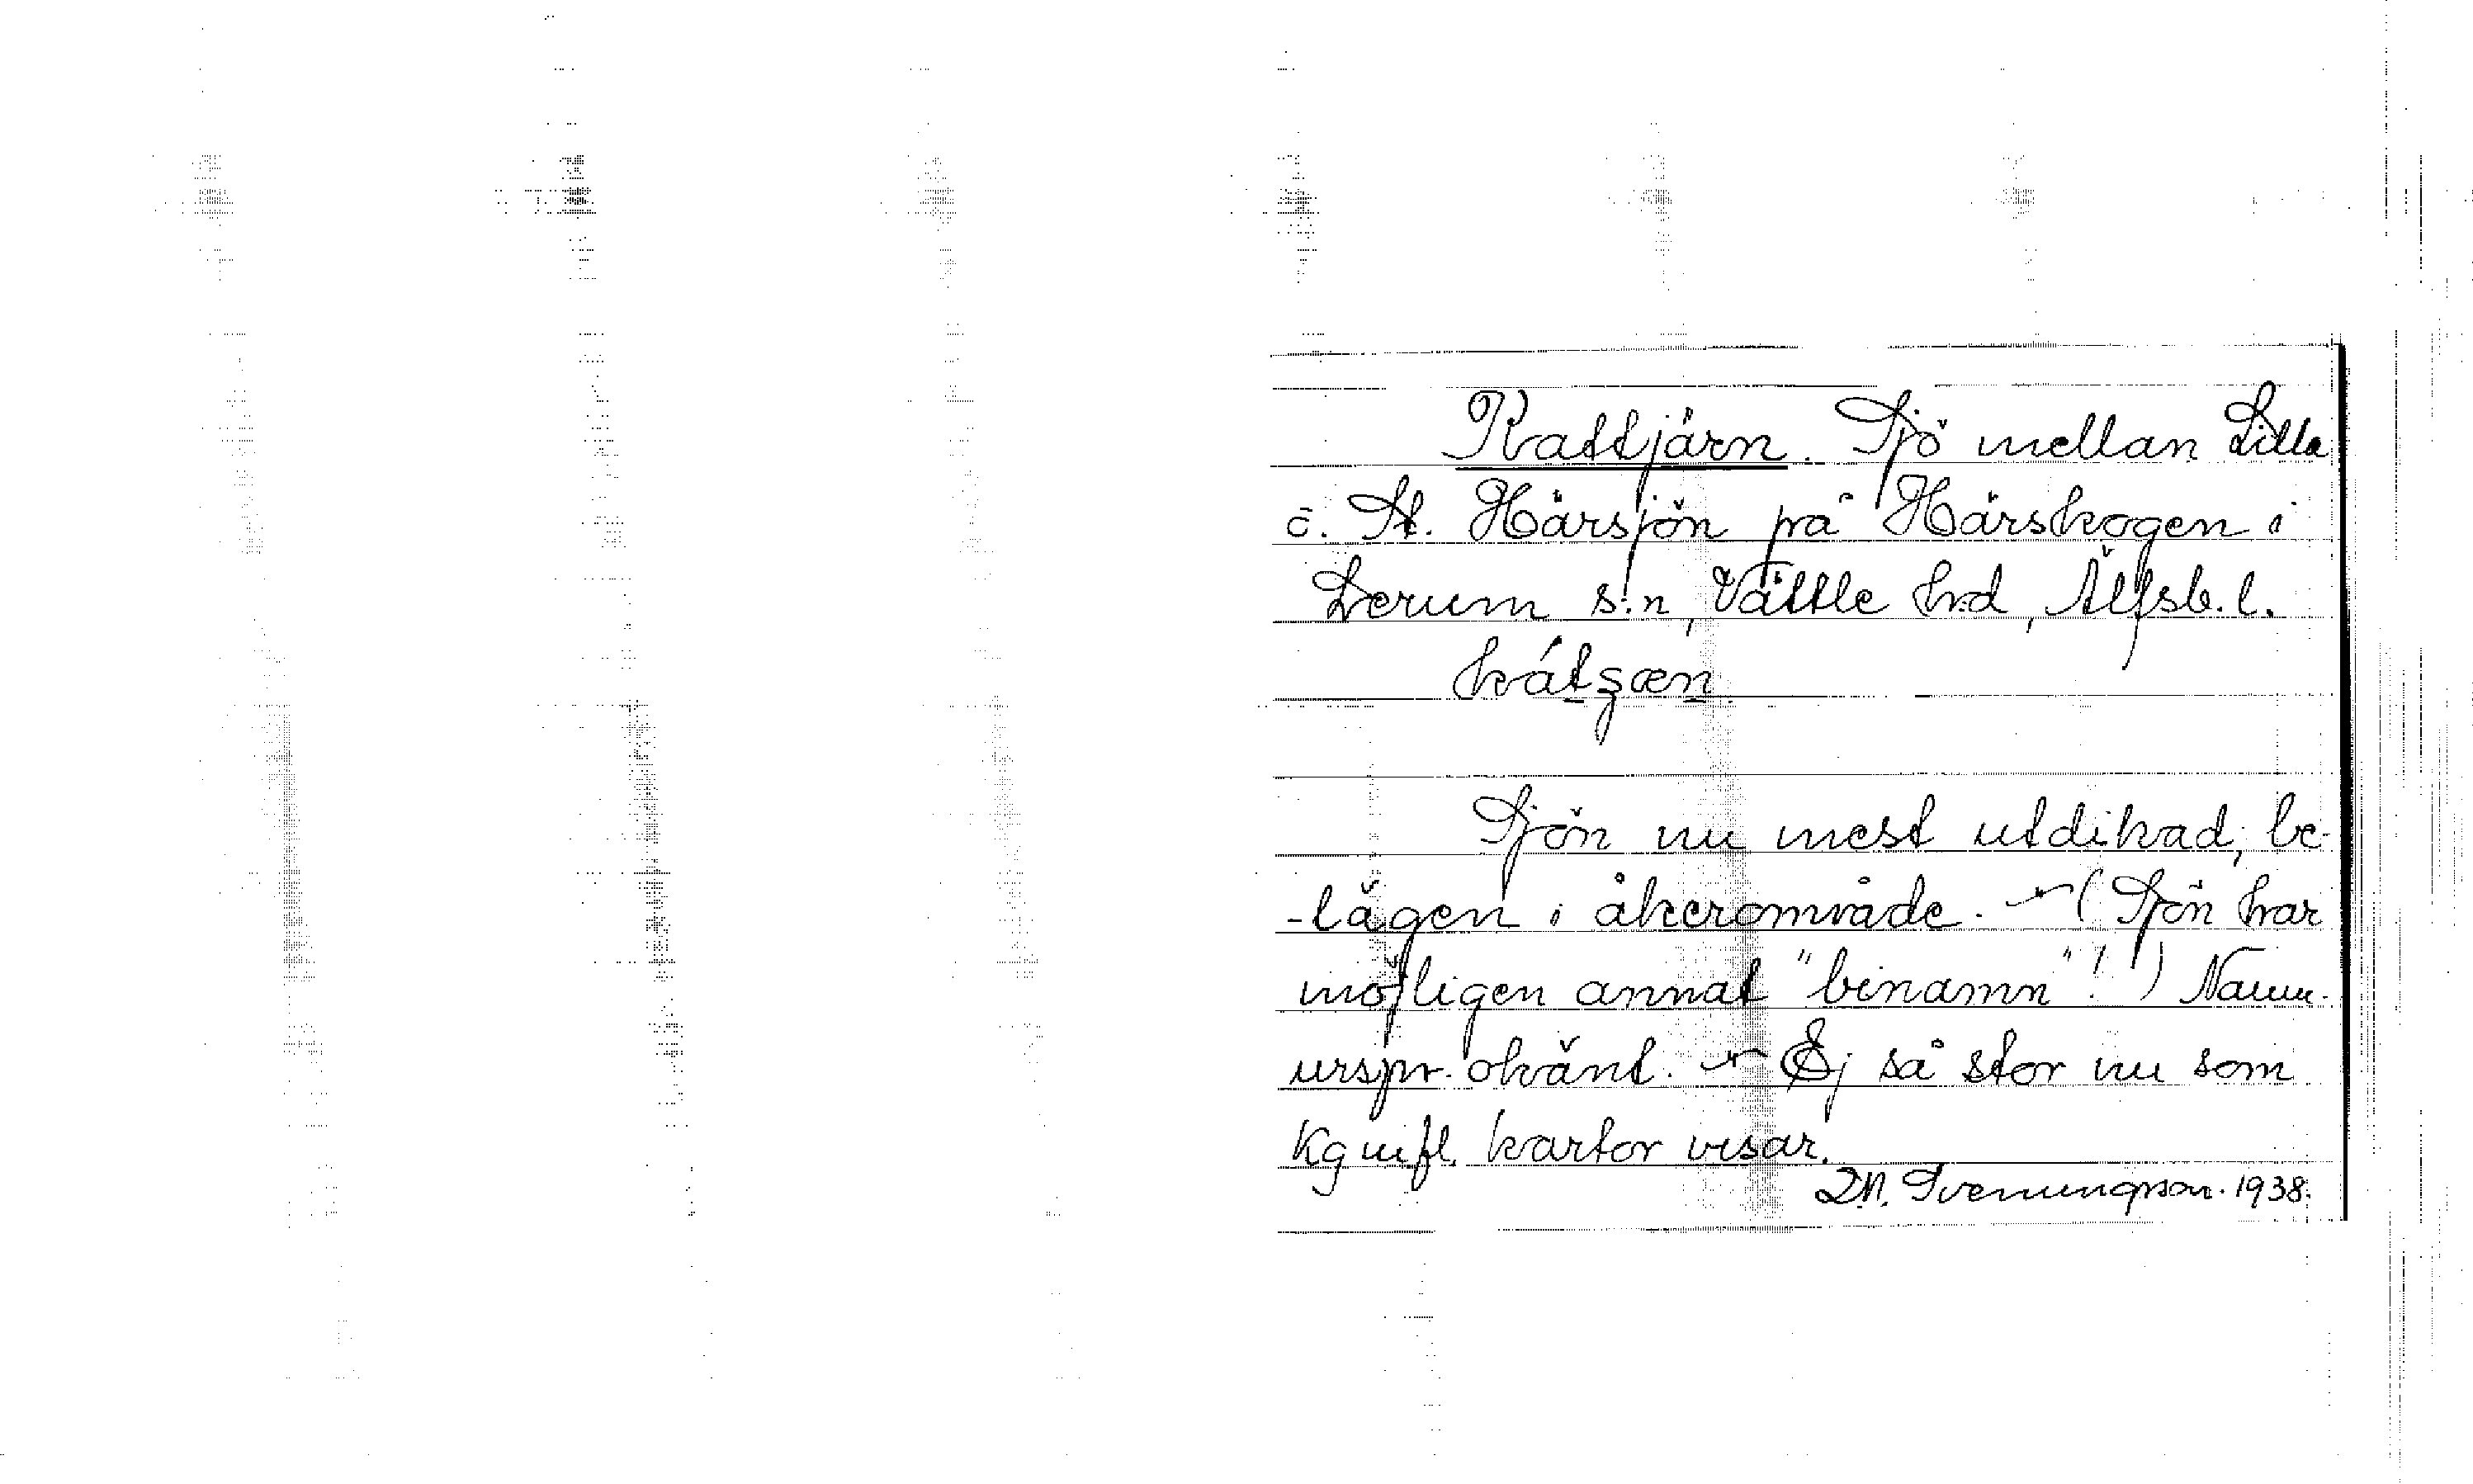 Kattjärn. Sjö mellan Lilla
o. St. Härsjön på Härskogen i
Lerum s:n, Vättle hd, Älfsb. l.
Sjön nu mest utdikad, be-
-lägen i åkerområde. — (Sjön har
möjligen annat "binamn"!) Namn-
urspr. okänt. — Ej så stor nu som
kartor visar.
D.N. Svenungsson. 1938.